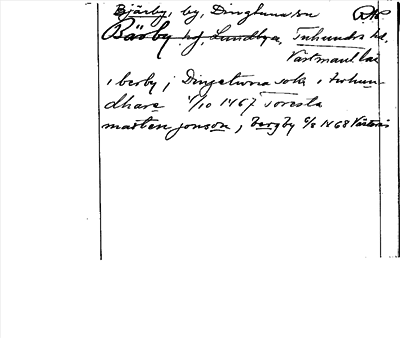 Bjärby, by, Dingtuna sn
Bärby hg, Lundbya, Tuhundra hd,
Västmanl. län
i berby, i Dingatuna sokn i twhun-
dhare 4/10 1467 Toresta
marten jonson, i bergby 1468 Västerås